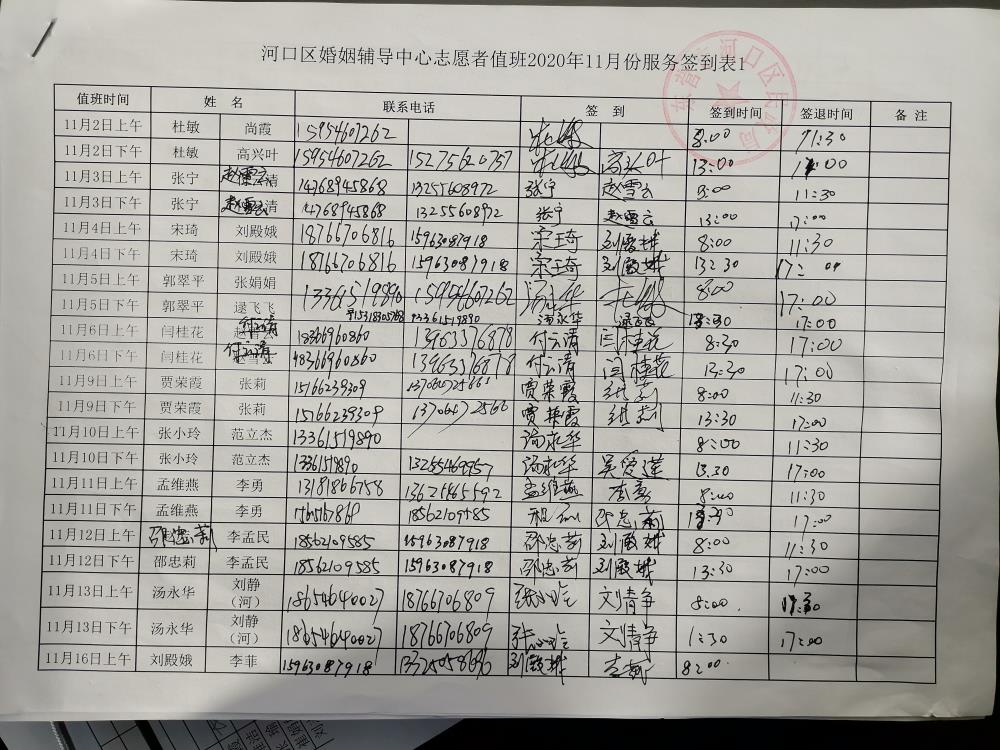 河口区婚姻辅导中心志愿者值班2020年11月份服务签到表1
值班时间 姓 名 联系电话 签 到 签到时间 签退时间 备 注
11月2日上午 杜敏 尚霞 15954607262 8:00 11:30
11月2日下午 杜敏 高兴叶 15954607262 15275620757 高兴叶 13:00
11月3日上午 张宁 赵雪云 14768945868 13255608972 张宁 赵雪云 11:30
11月3日下午 张宁 赵雪云 14768945868 13255608972 张宁 赵雪云 13:00 17:00
11月4日上午 宋琦 刘殿娥 18766706816 15963087918 宋琦 刘殿娥 8:00 11:30
11月4日下午 宋琦 刘殿娥 18766706816 15963087918 宋琦 刘殿娥 17:00
11月5日上午 郭翠平 张娟娟 13361519890 15954607262 汤永华 8:00 17:00
11月5日下午 郭翠平 逯飞飞 15318305768 13361519890 汤永华 17:00
11月6日上午 闫桂花 付云清 18366960860 13963376878 付云清 闫桂花 8:30 17:00
11月6日下午 闫桂花 付云清 18366960860 13963376878 付云清 闫桂花 13:30 17:00
11月9日上午 贾荣霞 张莉 15166239309 贾荣霞 张莉 8:00 11:30
11月9日下午 贾荣霞 张莉 15166239309 贾荣霞 张莉 13:30 17:00
11月10日上午 张小玲 范立杰 13361519890 汤永华 8:00 11:30
11月10日下午 张小玲 范立杰 13255469957 汤永华 吴爱莲 13:30 17:00
11月11日上午 孟维燕 李勇 13181866758 孟维燕 李勇 8:00 11:30
11月11日下午 孟维燕 李勇 18562109585 邵忠莉 17:00
11月12日上午 邵忠莉 李孟民 18562109585 15963087918 邵忠莉 刘殿娥 8:00 11:30
11月12日下午 邵忠莉 李孟民 18562109585 15963087918 邵忠莉 刘殿娥 13:30 17:00
11月13日上午 汤永华 刘静（河） 18654640027 18766706809 张小玲 文情争 8:00
11月13日下午 汤永华 刘静（河） 18654640027 18766706809 张小玲 文情争 1:30 17:00
11月16日上午 刘殿娥 李菲 15963087918 刘殿娥 8:00